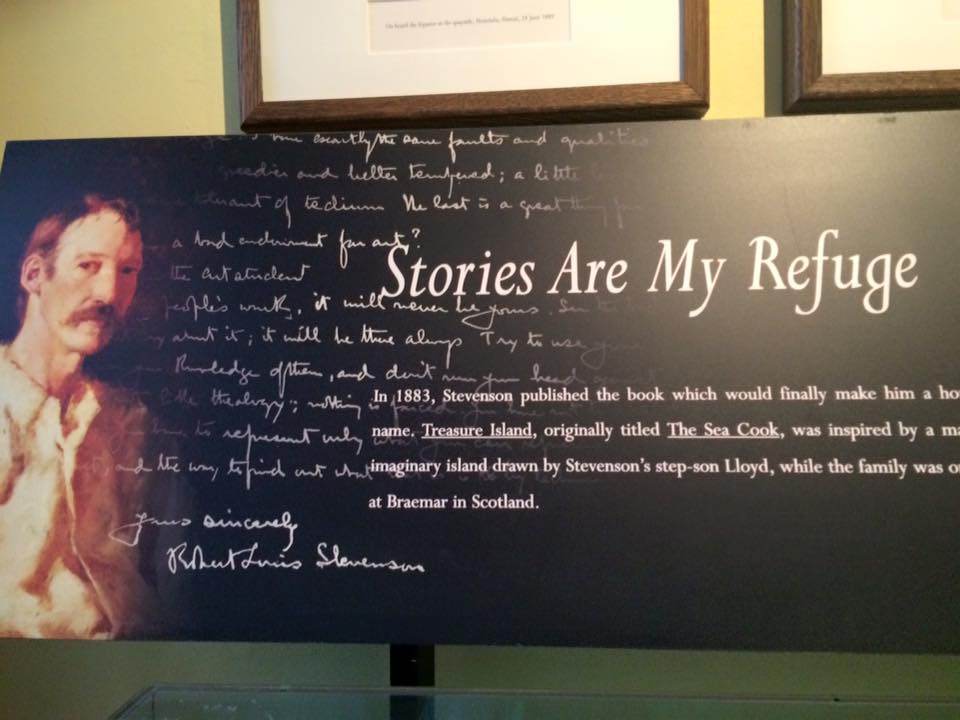 On board the Equator at the quayside, Honolulu, Hawaii, 24 June 1889
exactly the same faults and qualities
and better tempered; a little
of tedium The last is a great thing for
a bad endowment for art?
the art student
people's work, it will never be yours.
about it; it will be there always Try to use your
knowledge of them, and don't run your head against
little theology; nothing is forced; you have not
to represent only what you can
and the way to find out what
Yours sincerely
Robert Louis Stevenson
Stories Are My Refuge
In 1883, Stevenson published the book which would finally make him a ho
name. Treasure Island, originally titled The Sea Cook, was inspired by a ma
imaginary island drawn by Stevenson's step-son Lloyd, while the family was o
at Braemar in Scotland.